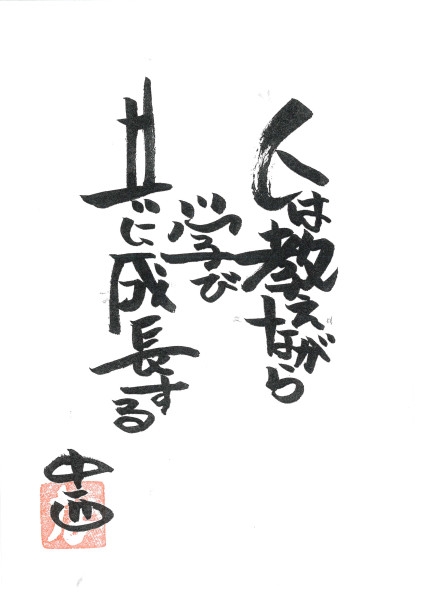 人は教えながら
学び
共に成長する
中西